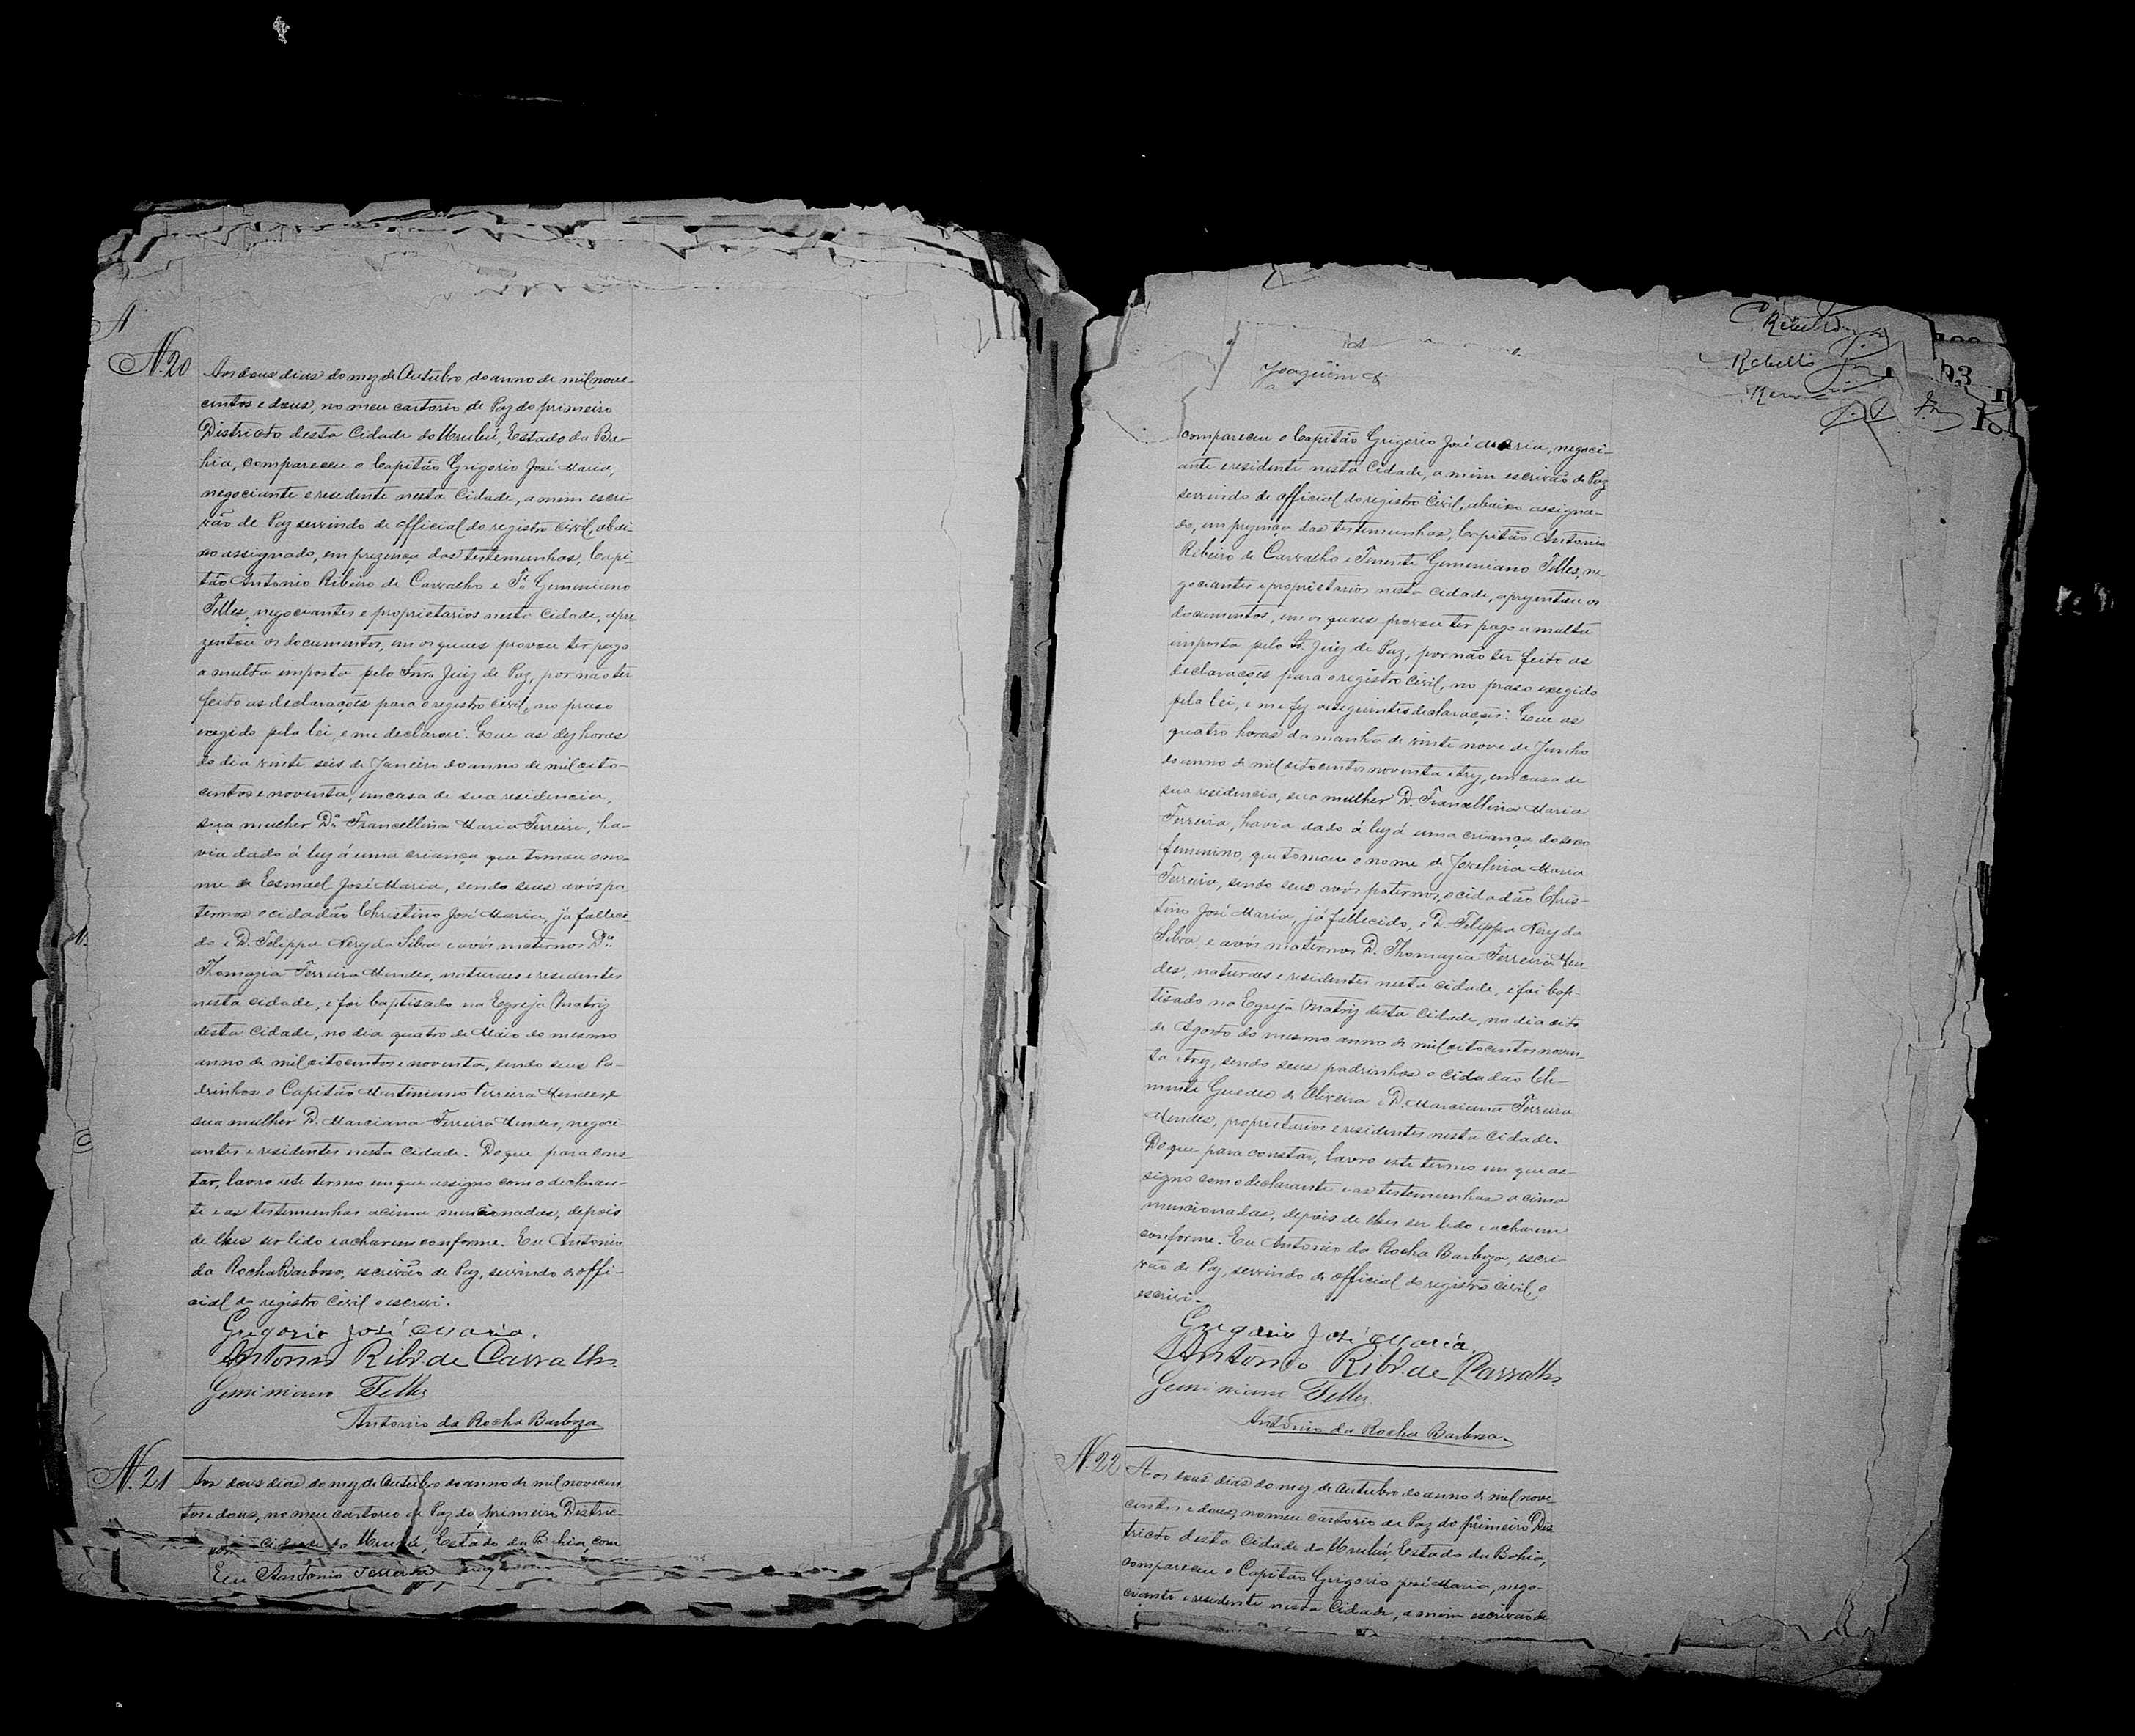 N. 20
Aos dous dias do mez de Outubro do anno de mil nove-
centos e dous, no meu cartorio de Paz do primeiro
Districto desta Cidade do Urubú, Estado da Ba-
hia, compareceu o Capitão Grigorio José Maria,
negociante e resedente nesta Cidade, a mim escri-
vão de Paz servindo de official do registro Civil, abai-
xo assignado, em prezença das testemunhas, Capi-
tão Antonio Ribeiro de Carvalho e Te. Geminiano
Telles, negociantes e proprietarios nesta Cidade, apre
zentou os documentos, em os quaes provou ter pago
a multa imposta pelo Snr. Juiz de Paz, por não ter
feito as declarações para o registro Civil, no praso
exegido pela lei, e me declarou: Que as dez horas
do dia vinte seis de Janeiro do anno de mil oito-
centos e noventa, em casa de sua residencia,
sua mulher Da. Francellina Maria Ferreira, ha-
via dado á luz á uma criança que tomou o no-
me de Esmael José Maria, sendo seus avós pa-
ternos o cidadão Christino José Maria, já falleci-
do e D. Felippa Nery da Silva e avós maternos Da.
Thomazia Ferreira Mendes, naturaes e resedentes
nesta cidade, e foi baptisado na Egreja Matriz
desta Cidade, no dia quatro de Maio do mesmo
anno de mil oitocentos e noventa, sendo seus Pa-
drinhos o Capitão Martiniano Ferreira Mendes, e
sua mulher D. Marciana Ferreira Mendes, negoci-
antes e residentes nesta Cidade. Do que para cons-
tar, lavro este termo em que assigno com o declaran-
te e as testemunhas acima mencionadas, depois
de lhes ser lido e acharem conforme. Eu Antonio
da Rocha Barboza, escrivão de Paz, servindo de offi-
cial do registro Civil o escrevi.
Gregorio José Maria.
Antonio Ribr. de Carvalho
Geminiano Telles
Antonio da Rocha Barboza
N. 21
Aos dous dias do mez de Outubro do anno de mil novecen
tos e dous, no meu cartorio de Paz do primeiro Distric-
Cidade do Urubú, Estado da Bahia, com
Eu Antonio Ferreira
Joaquim
Rebello
compareceu o Capitão Grigorio José Maria, negoci-
ante e residente nesta Cidade, a mim escrivão de Paz
servindo de official do registro Civil, abaixo assigna-
do, em prezença das testemunhas, Capitão Antonio
Ribeiro de Carvalho e Tenente Geminiano Telles, ne
gociantes e proprietarios nesta cidade, aprezentou os
documentos, em os quaes provou ter pago a multa
imposta pelo Sr. Juiz de Paz, por não ter feito as
declarações para o registro Civil, no praso exegido
pela lei, e me fez as seguintes declarações: Que as
quatro horas da manhã de vinte nove de Junho
do anno de mil oitocentos noventa e trez, em casa de
sua residencia, sua mulher D. Francellina Maria
Ferreira, havia dado á luz á uma criança do sexo
femenino, que tomou o nome de Jovelina Maria
Ferreira, sendo seus avós paternos, o cidadão Chris-
tino José Maria, já fallecido, e D. Felippa Nery da
Silva e avós maternos D. Thomazia Ferreira Men-
des, naturaes e residentes nesta cidade, e foi bap-
tisado na Egreja Matriz desta Cidade, no dia oito
de Agosto do mesmo anno de mil oitocentos noven-
ta e trez, sendo seus padrinhos o cidadão Cle-
mente Guedes de Oliveira e D. Marciana Ferreira
Mendes, proprietarios e residentes nesta Cidade.
Do que para constar, lavro este termo em que as-
signo com o declarante e as testemunhas acima
mencionadas, depois de lhes ser lido e acharem
conforme. Eu Antonio da Rocha Barboza, escri-
vão de Paz, servindo de official do registro Civil, o
escrevi.
Gregorio José Maria
Antonio Ribr. de Carvalho
Geminiano Telles
Antonio da Rocha Barboza
N. 22
Aos dous dias do mez de Outubro do anno de mil nove
centos e dous, no meu cartorio de Paz do primeiro Dis
tricto desta Cidade do Urubú, Estado da Bahia,
compareceu o Capitão Grigorio José Maria, nego-
ciante e residente nesta Cidade, a mim escrivão de